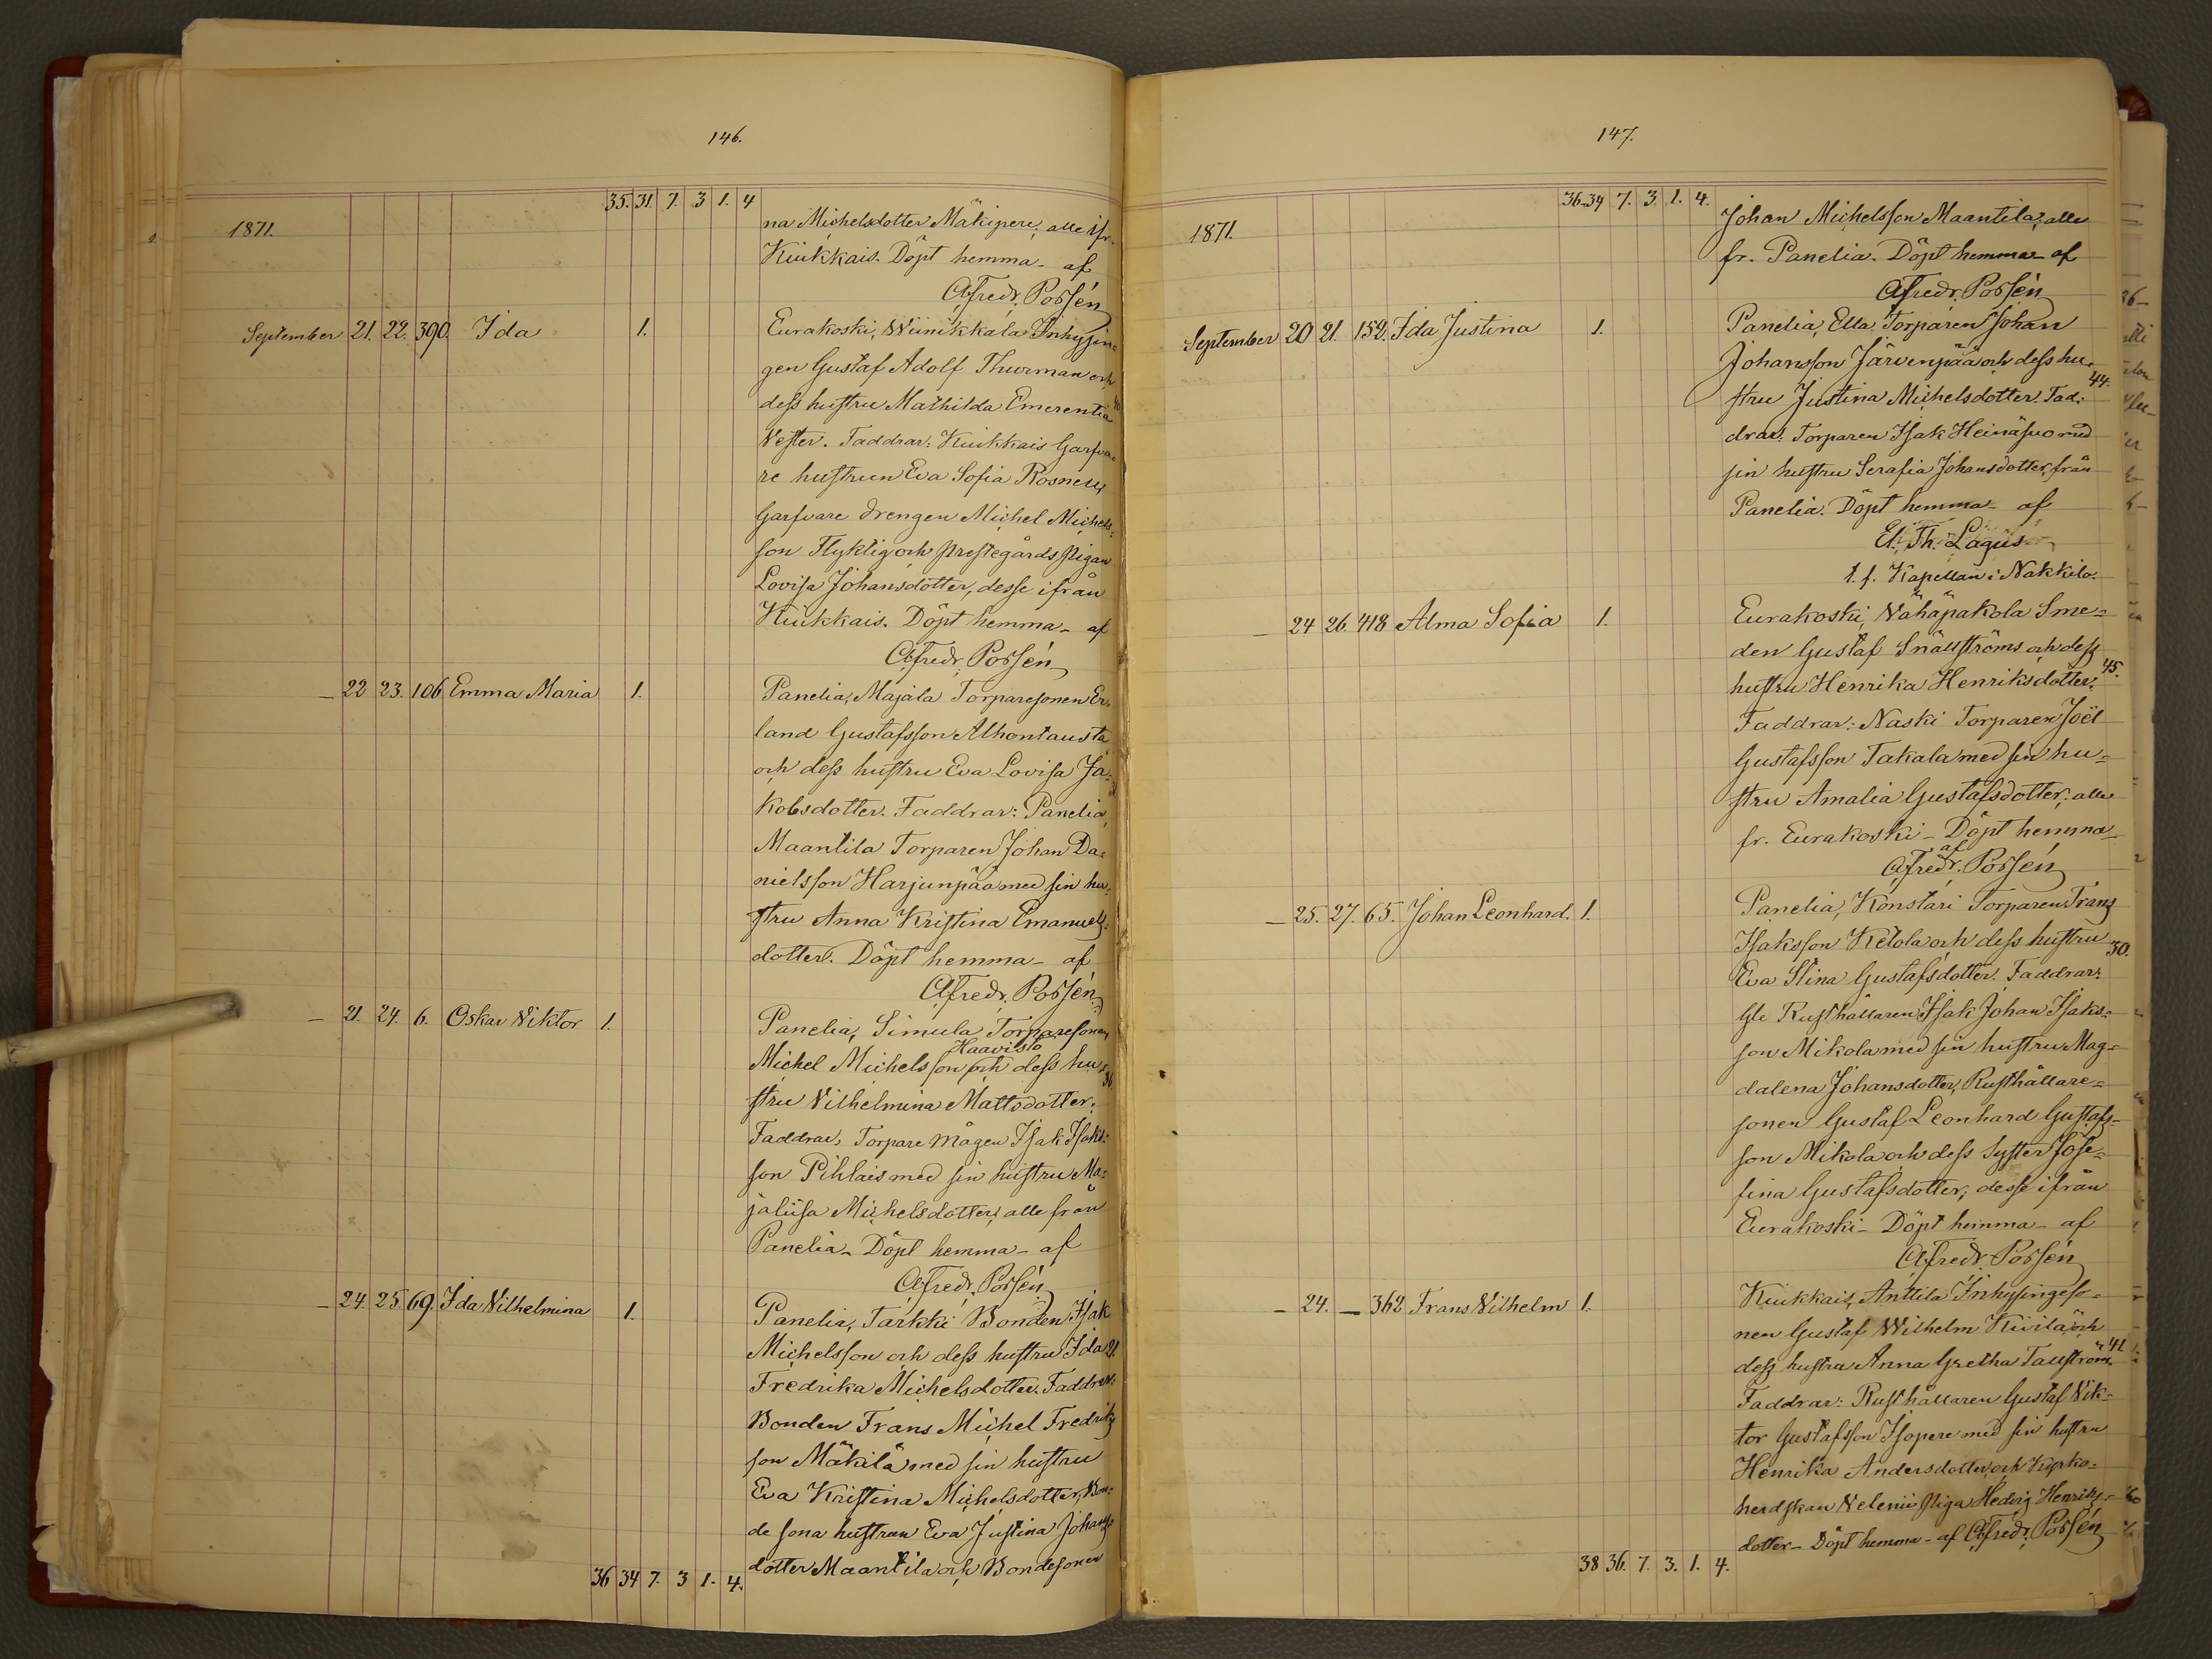 146.
35. 31. 7. 3 1. 4
1871.
na Michelsdotter Mäkipere; alle ifr.
Kiukkais. Döpt hemma - af
Alfredr. Possén
September 21. 22. 390. Ida 1.
Eurakoski, Wiinikkala Inhysin=
gen Gustaf Adolf Thurman och
dess hustru Mathilda Emerentia
Vester. Faddrar: Kiukkais Garfva=
re hustrun Eva Sofia Rosnell,
Garfvare drengen Michel Michels=
son Flyktig och prestegårds pigan
Lovisa Johansdotter, desse ifrån
Kiukkais. Döpt hemma - af
Alfredr. Possén
— 22 23. 106 Emma Maria 1.
Panelia, Majala Torparesonen Er=
land Gustafsson Alhontausta
och dess hustru Eva Lovisa Ja=
kobsdotter. Faddrar: Panelia,
Maantila Torparen Johan Da=
nielsson Harjunpää med sin hu=
stru Anna Kristina Emanuels=
dotter. Döpt hemma - af
Alfredr. Possén
— 21. 24. 6. Oskar Viktor 1.
Panelia, Simula Torparesonen
Haavisto
Michel Michelsson och dess hu= 36
stru Vilhelmina Mattsdotter.
Faddrar, Torpare mågen Isak Isaks=
son Pihlais med sin hustru Ma=
jaliisa Michelsdotter; alle från
Panelia - Döpt hemma - af
Alfredr. Possén
— 24. 25. 69. Ida Vilhelmina 1.
Panelia, Tarkki Bonden Isak
Michelsson och dess hustru Ida 21.
Fredrika Michelsdotter. Faddrar:
Bonden Frans Michel Fredriks
son Mäkilä med sin hustru
Eva Kristina Michelsdotter, Bon=
de sona hustrun Eva Justina Johans=
dotter Maantila och Bondesonen
36 34 7. 3 1. 4.
147.
36. 34 7. 3. 1. 4.
1871.
Johan Michelsson Maantila; alle
fr. Panelia. Döpt hemma - af
Alfredr. Possén
September 20 21. 152. Ida Justina 1.
Panelia, Ella Torparen Johan
Johansson Järvenpää och dess hu=
44.
stru Justina Michelsdotter. Fad=
drar: Torparen Isak Heinäsuo med
sin hustru Serafia Johansdotter, från
Panelia. Döpt hemma - af
El. Th. Lagus
t. f. Kapellan i Nakkila.
— 24 26. 418 Alma Sofia 1.
Eurakoski, Vähäpakola Sme=
den Gustaf Snällströms och dess
45.
hustru Henrika Henriksdotter.
Faddrar: Naski Torparen Joël
Gustafsson Takala med sin hu=
stru Amalia Gustafsdotter; alle
fr. Eurakoski - Döpt hemma -
af
Alfredr. Possén
— 25. 27. 65. Johan Leonhard. 1.
Panelia, Konstari Torparen Frans
Isaksson Ketola och dess hustru 30.
Eva Stina Gustafsdotter. Faddrar:
Gle Rusthållaren Isak Johan Isaks=
son Mikola med sin hustru Mag=
dalena Johansdotter, Rusthållare=
sonen Gustaf Leonhard Gustafs=
son Mikola och dess Syster Jose=
fina Gustafsdotter, desse ifrån
Eurakoski - Döpt hemma - af
Alfredr. Possén
— 24. — 362 Frans Vilhelm 1.
Kiukkais, Anttila Inhysingeso=
nen Gustaf Wilhelm Kiviläs och
41
dess hustru Anna Gretha Tallström.
Faddrar: Rusthållaren Gustaf Vik=
tor Gustafsson Isopere med sin hustru
Henrika Andersdotter, och Kyrko=
herdskan Velenii Piga Hedvig Henriks=
dotter - Döpt hemma - af Alfredr. Possén
38 36. 7. 3. 1. 4.